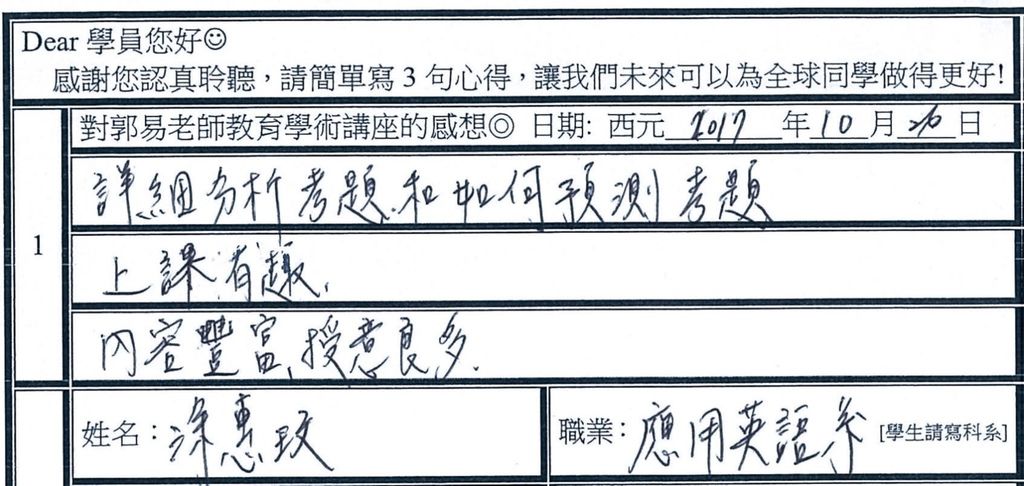 Dear 學員您好☺
感謝您認真聆聽，請簡單寫 3 句心得，讓我們未來可以為全球同學做得更好!
對郭易老師教育學術講座的感想◎ 日期: 西元 2017 年 10 月 26 日
詳細分析考題和如何預測考題
1
上課有趣.
內容豐富,授意良多.
姓名：涂惠玟
職業：應用英語系 [學生請寫科系]